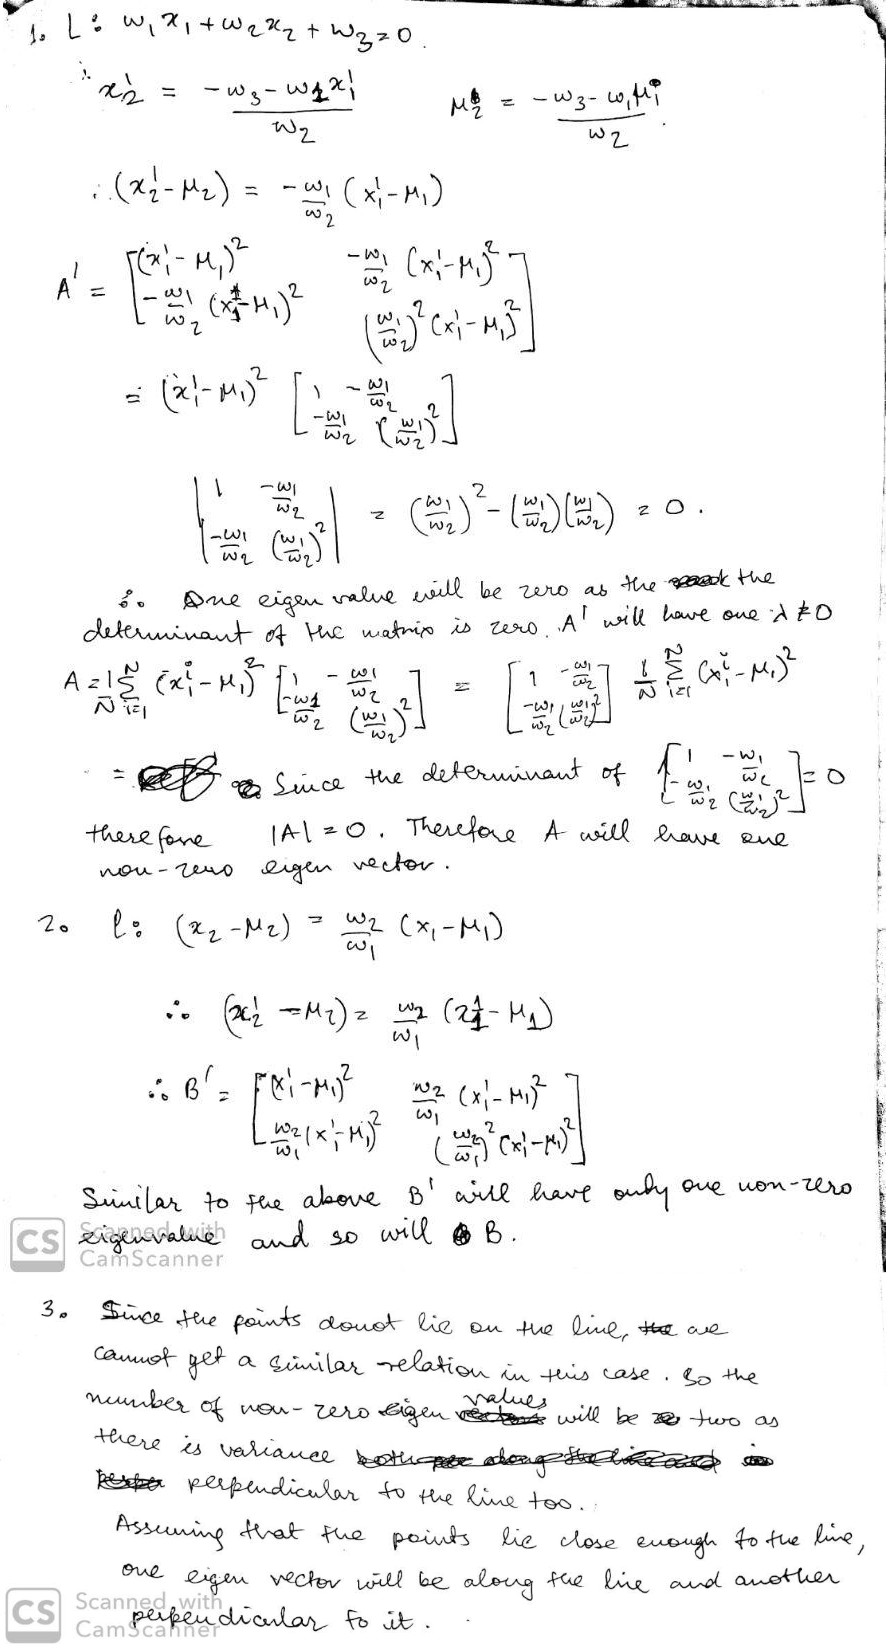 1. L: w₁x₁ + w₂x₂ + w₃ = 0.
∴ x₂¹ = (-w₃ - w₁x₁¹)/w₂    μ₂ = (-w₃ - w₁μ₁)/w₂.
∴ (x₂¹ - μ₂) = -w₁/w₂ (x₁¹ - μ₁)
A' = [(x₁¹ - μ₁)²    -w₁/w₂ (x₁¹ - μ₁)²
-w₁/w₂ (x₁¹ - μ₁)²    (w₁/w₂)² (x₁¹ - μ₁)²]
= (x₁¹ - μ₁)² [1    -w₁/w₂
-w₁/w₂    (w₁/w₂)²]
|1    -w₁/w₂
-w₁/w₂    (w₁/w₂)²| = (w₁/w₂)² - (w₁/w₂)(w₁/w₂) = 0.
∴ One eigen value will be zero as the the
determinant of the matrix is zero. A' will have one λ ≠ 0
A = 1/N Σᵢ₌₁ᴺ (x₁ⁱ - μ₁)² [1    -w₁/w₂
-w₁/w₂    (w₁/w₂)²] = [1    -w₁/w₂
-w₁/w₂    (w₁/w₂)²] 1/N Σᵢ₌₁ᴺ (x₁ⁱ - μ₁)²
= Since the determinant of [1    -w₁/w₂
-w₁/w₂    (w₁/w₂)²] = 0
therefore |A| = 0. Therefore A will have one
non-zero eigen vector.
2. l: (x₂ - μ₂) = w₂/w₁ (x₁ - μ₁)
∴ (x₂¹ - μ₂) = w₂/w₁ (x₁¹ - μ₁)
∴ B' = [(x₁¹ - μ₁)²    w₂/w₁ (x₁¹ - μ₁)²
w₂/w₁ (x₁¹ - μ₁)²    (w₂/w₁)² (x₁¹ - μ₁)²]
Similar to the above B' will have only one non-zero
eigenvalue and so will B.
CS Scanned with
CamScanner
3. Since the points donot lie on the line, we
cannot get a similar relation in this case. So the
number of non-zero eigen values will be two as
there is variance
perpendicular to the line too.
Assuming that the points lie close enough to the line,
one eigen vector will be along the line and another
perpendicular to it.
CS Scanned with
CamScanner